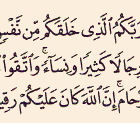 رَبَّكُمُ ٱلَّذِى خَلَقَكُم مِّن نَّفْسٍ
رِجَالًا كَثِيرًا وَنِسَآءً ۚ وَٱتَّقُوا۟
حَامَ ۚ إِنَّ ٱللَّهَ كَانَ عَلَيْكُمْ رَقِي